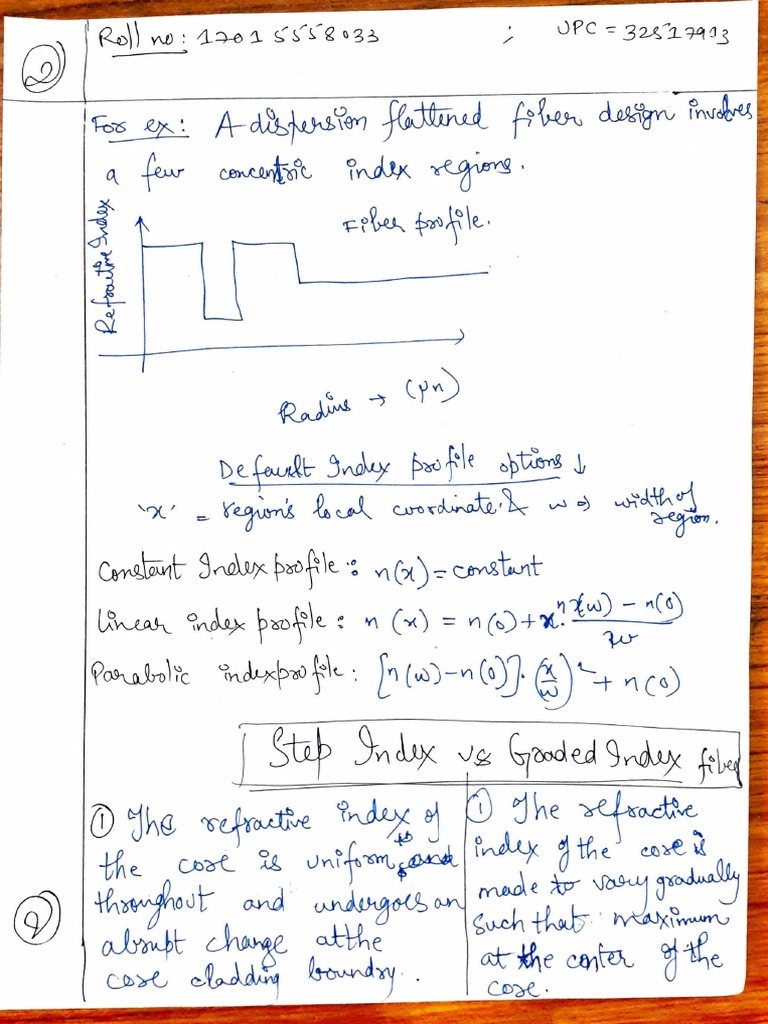 2
Roll no: 17015558033 ; UPC = 32517913
For ex: A dispersion flattened fiber design involves
a few concentric index regions.
Refractive Index
Fiber profile.
Radius → (μn)
Default Index profile options ↓
'x' = region's local coordinate & w ⇒ width of
region.
Constant Index profile : n(x) = constant
Linear index profile : n (x) = n(0) + x. n(w) - n(0) / w
Parabolic index profile : [n(w) - n(0)]. (x/w)² + n(0)
Step Index vs Graded Index fiber
① The refractive index of
the core is uniform
throughout and undergoes an
abrupt change at the
core cladding boundry.
① The refractive
index of the core is
made to vary gradually
such that maximum
at the center of the
core.
2